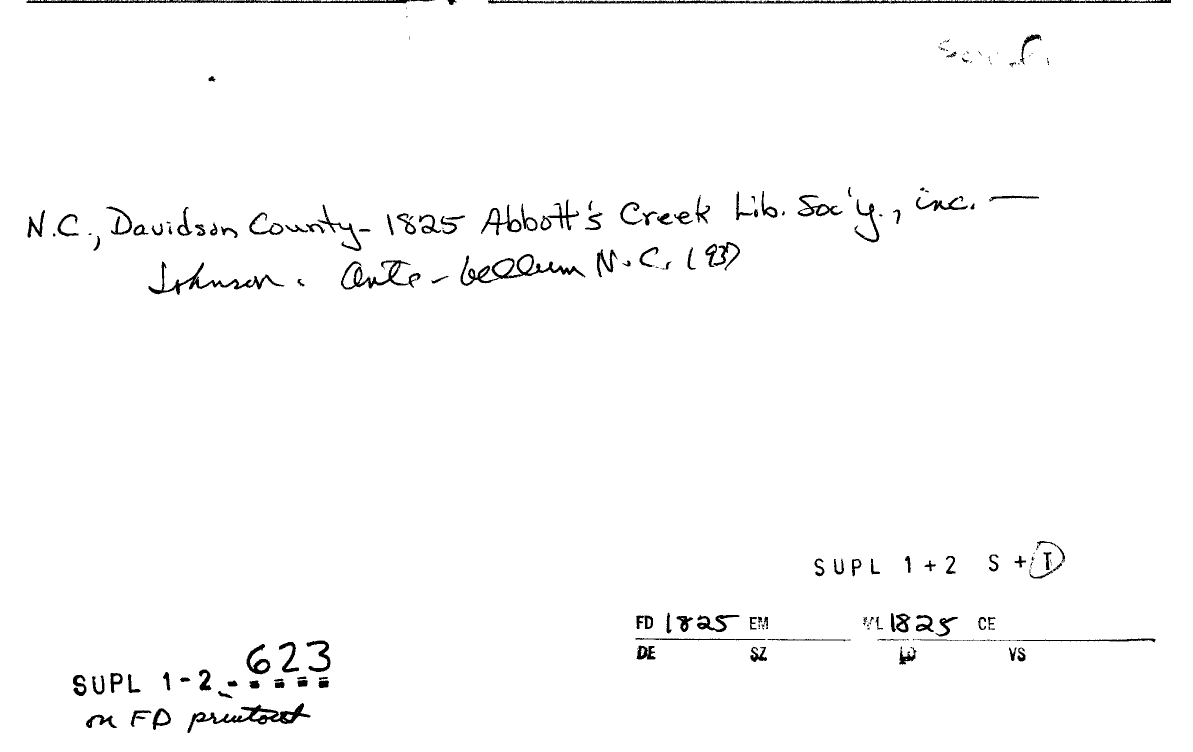 N.C., Davidson County - 1825 Abbott's Creek Lib. Soc'y., inc. —
Johnson. Ante-bellum N.C. (937
SUPL 1+2 S+T
FD 1825 EM VL 1825 CE
DE SZ LD VS
SUPL 1-2-623
on FD printout